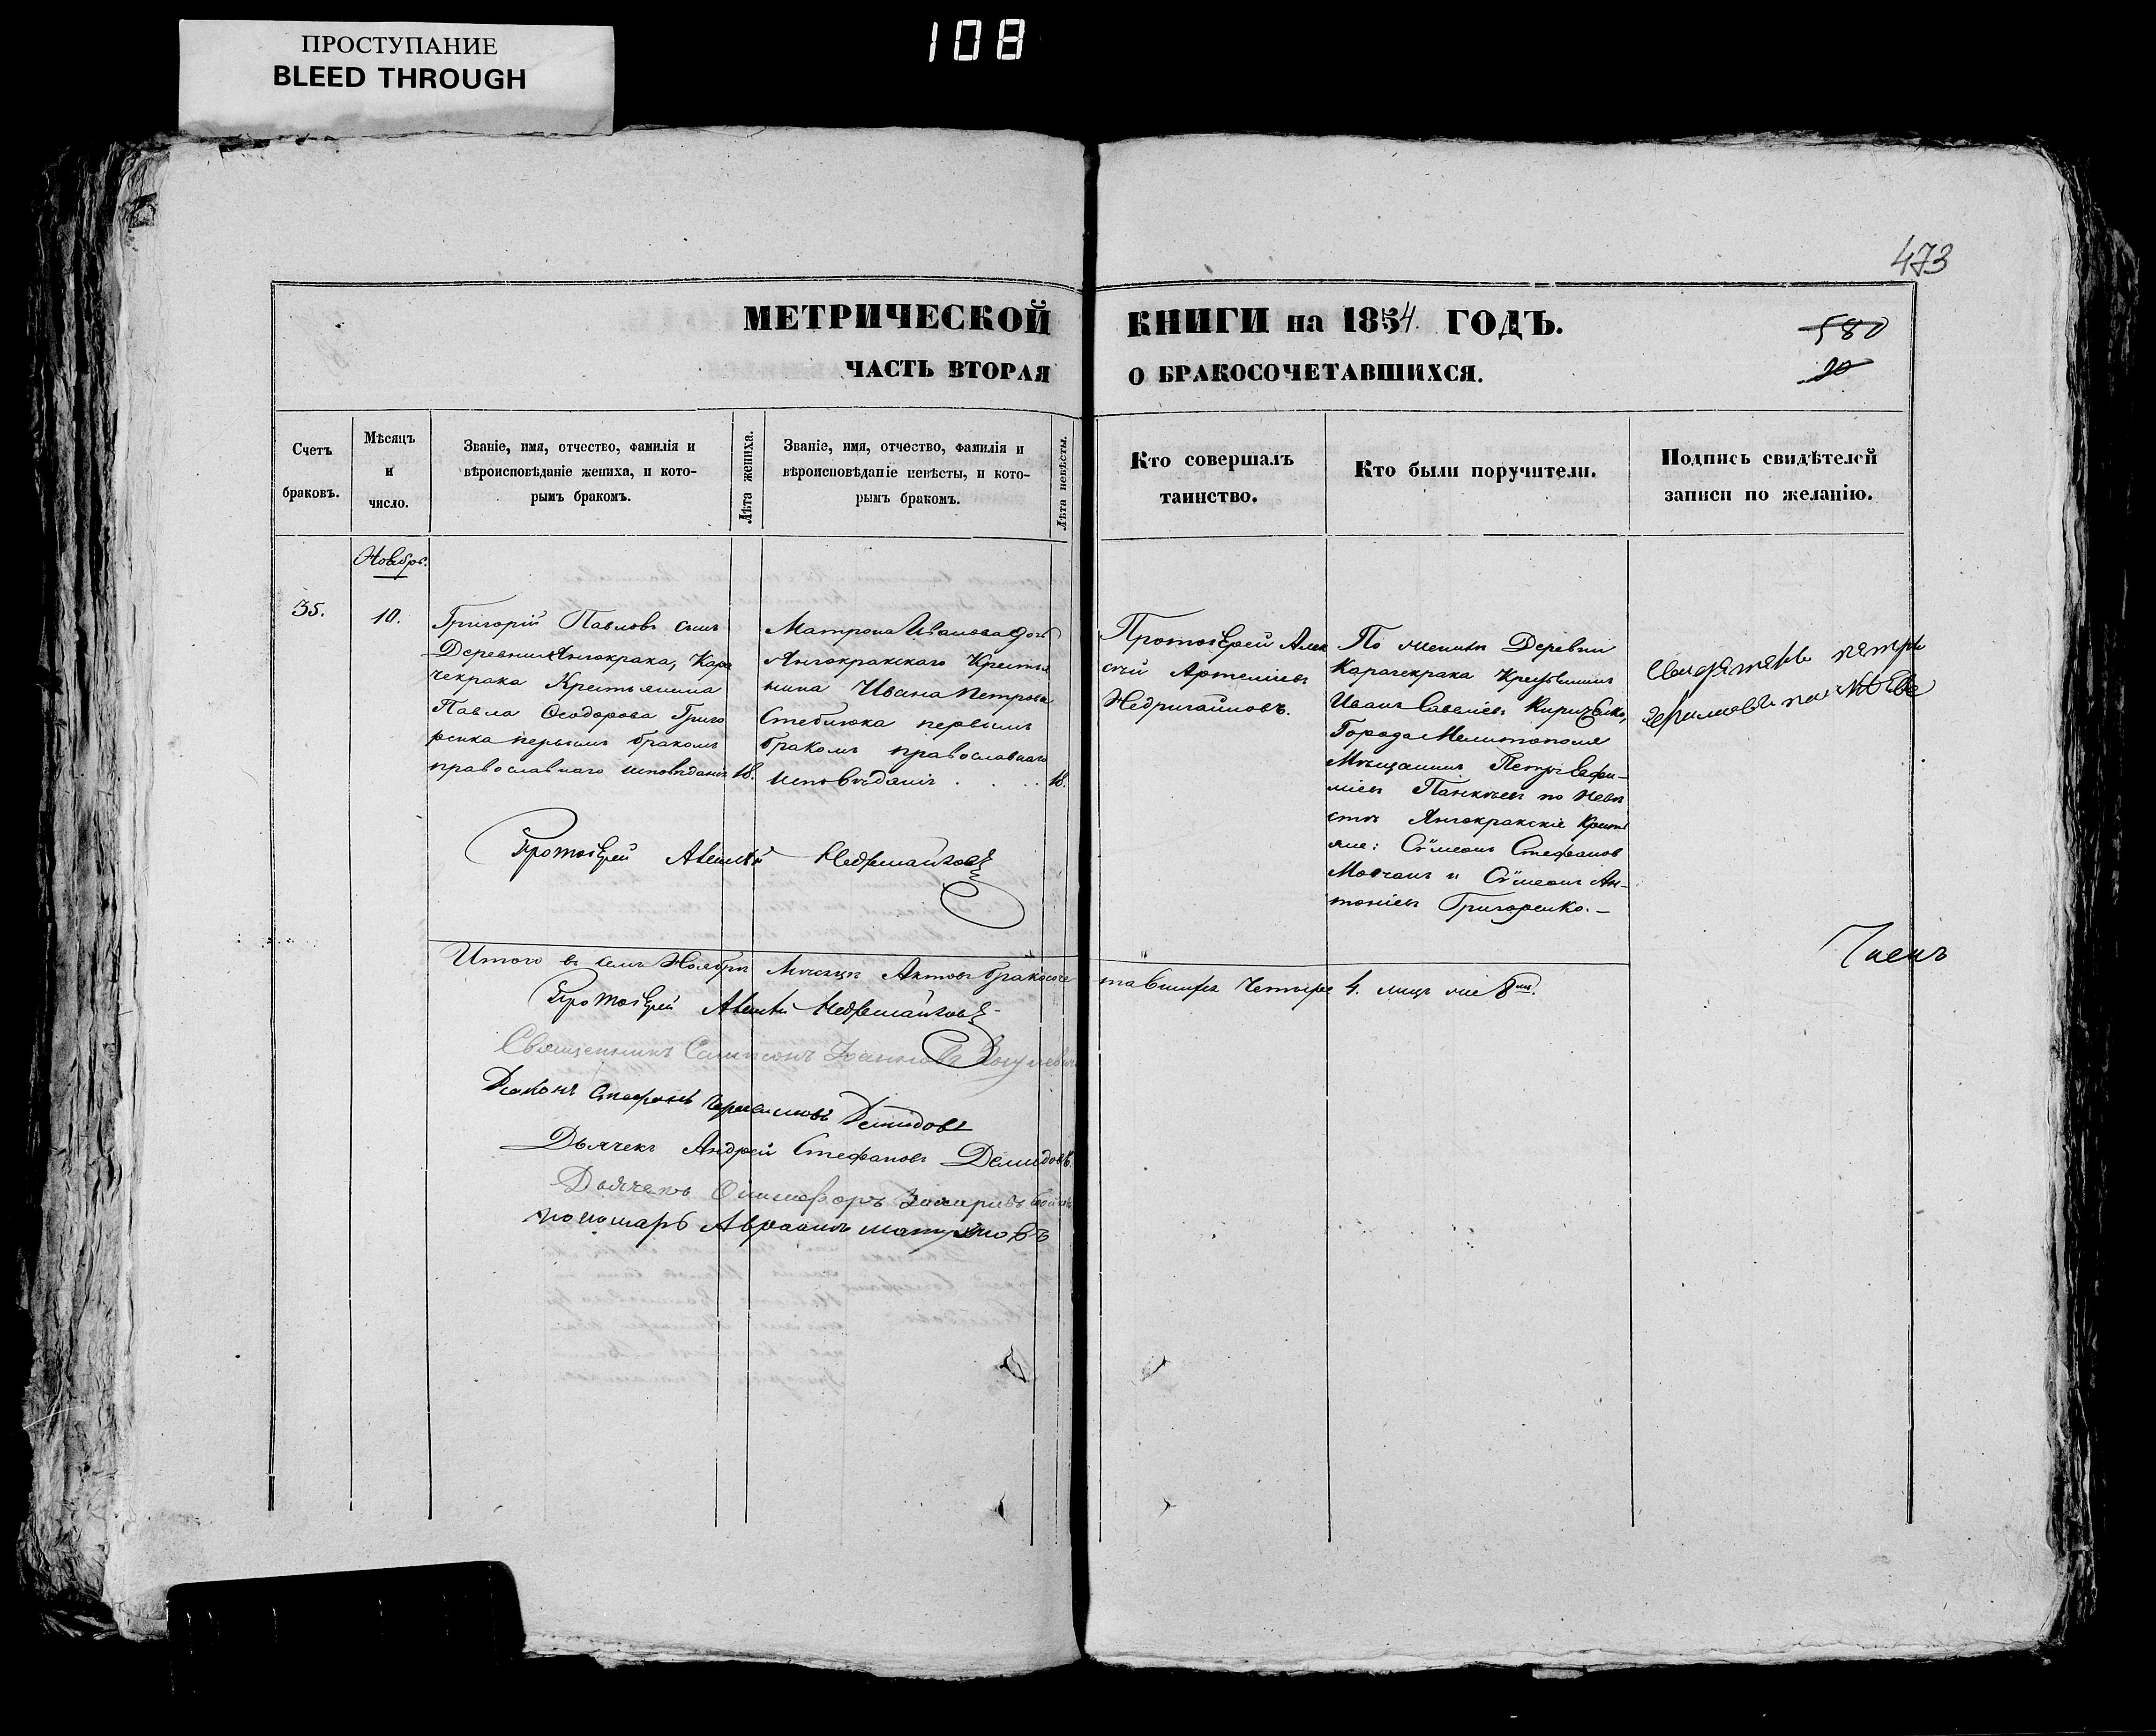 ПРОСТУПАНИЕ
BLEED THROUGH
108
473
МЕТРИЧЕСКОЙ
КНИГИ на 1854. ГОДЪ.
580
20
ЧАСТЬ ВТОРАЯ
О БРАКОСОЧЕТАВШИХСЯ.
Счетъ
браковъ.
Мѣсяцъ
и
число.
Званіе, имя, отчество, фамилія и
вѣроисповѣданіе жениха, и кото-
рымъ бракомъ.
Лѣта жениха.
Званіе, имя, отчество, фамилія и
вѣроисповѣданіе невѣсты, и кото-
рымъ бракомъ.
Лѣта невѣсты.
Кто совершалъ
таинство.
Кто были поручители.
Подпись свидѣтелей
записи по желанію.
Ноябрь.
35.
10.
Григорій Павловъ сынъ
Деревни Янчокрака, Кара
чекрака Крестьянина
Павла Ѳеодорова Григо
ренка первымъ бракомъ
православнаго исповѣданія
18.
Матрона Иванова дочь
Янчокракскаго Крестья
нина Ивана Петрова
Стеблюка первымъ
бракомъ православнаго
исповѣданія . . .
18.
Протоіерей Алек
сѣй Артеміевъ
Недригайловъ.
По женихѣ Деревни
Карачекрака Крестьянинъ
Иванъ Савеліевъ Кириченко,
Города Мелитополя
Мѣщанинъ Петръ Евфи-
міевъ Панкѣевъ по невѣ
стѣ Янчокракскіе Кресть
яне: Сѷмеонъ Стефановъ
Мовчанъ и Сѷмеонъ Ан-
тоніевъ Григоренко. –
свидѣтель петръ
Протоіерей Алексѣй Недригайловъ
Итого въ семъ Ноябрѣ Мѣсяцѣ Актовъ бракосоче
тавшихся Четыре 4. лицъ же 8мъ.
Протоіерей Алексѣй Недригайловъ
Священникъ Сампсонъ Іоанновъ
Діаконъ Стефанъ Демидовъ
Дьячекъ Андрей Стефановъ Демидовъ.
Дьячекъ
пономарь Авраамъ
Членъ